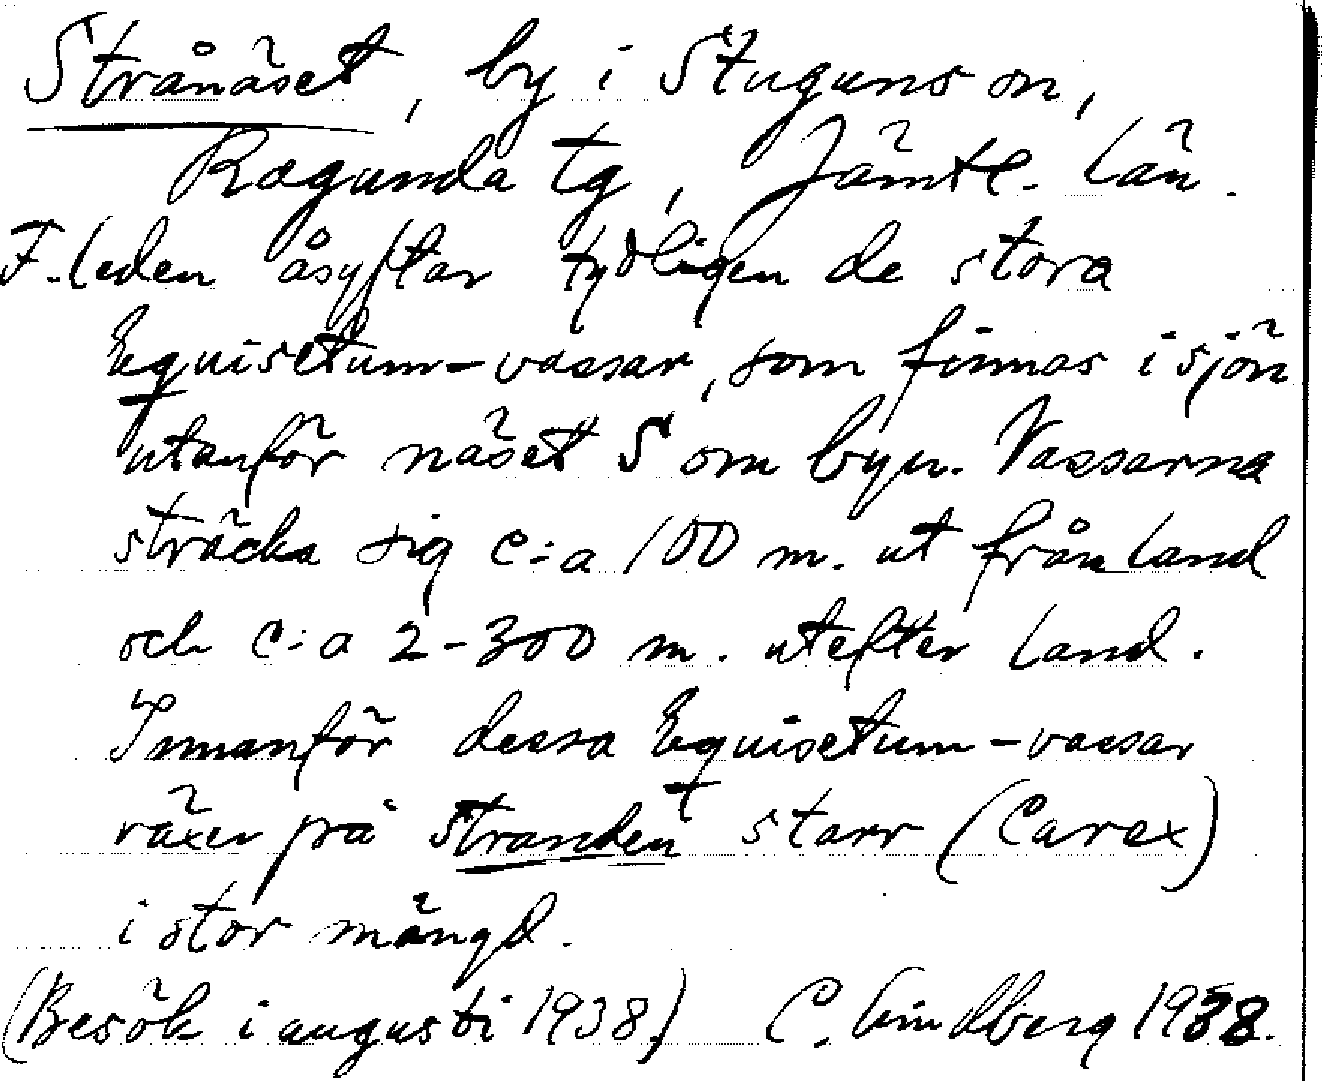 Strånäset, by i Stuguns sn,
Ragunda tg, Jämtl. län.
F.leden åsyftar tydligen de stora
Equisetum-vassar, som finnas i sjön
utanför näset S om byn. Vassarna
sträcka sig c:a 100 m. ut från land
och c:a 2-300 m. utefter land.
Innanför dessa Equisetum-vassar
växer på stranden starr (Carex)
i stor mängd.
(Besök i augusti 1938.) C. Lindberg 1938.